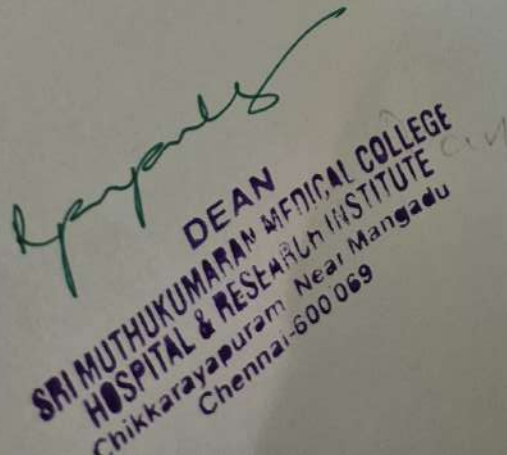 DEAN
SRI MUTHUKUMARAN MEDICAL COLLEGE
HOSPITAL & RESEARCH INSTITUTE
Chikkarayapuram Near Mangadu
Chennai-600 069